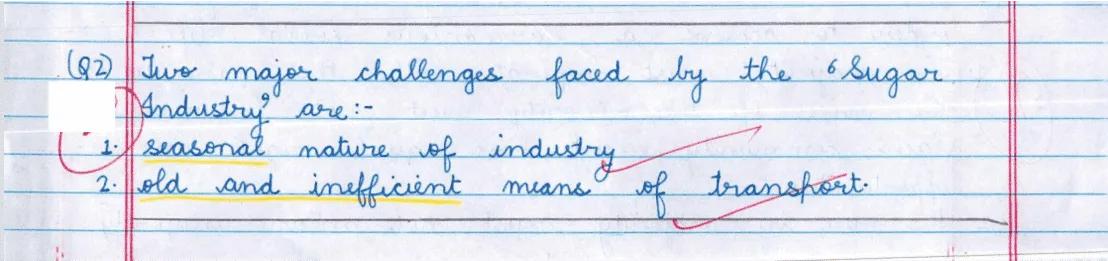 (Q2) Two major challenges faced by the ‘Sugar
Industry’ are :-
1. seasonal nature of industry
2. old and inefficient means of transport.